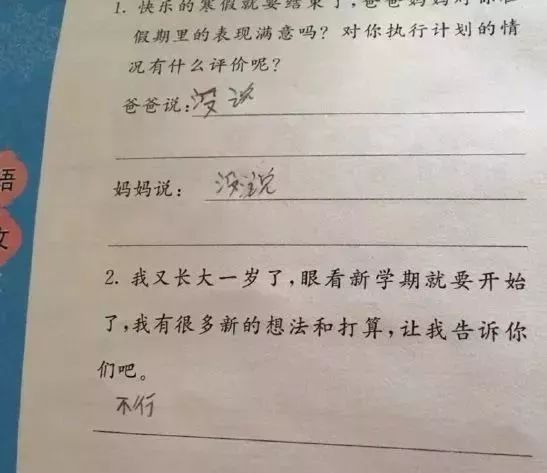 1. 快乐的寒假就要结束了,爸爸妈妈对你在
假期里的表现满意吗? 对你执行计划的情
况有什么评价呢?
爸爸说:没说
妈妈说: 没说
2. 我又长大一岁了,眼看新学期就要开始
了,我有很多新的想法和打算,让我告诉你
们吧。
不行
语
文